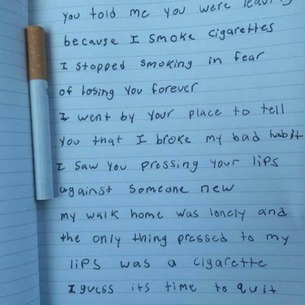 you told me you were leaving
because I smoke cigarettes
I stopped smoking in fear
of losing you forever
I went by your place to tell
you that I broke my bad habit
I saw you pressing your lips
against someone new
my walk home was lonely and
the only thing pressed to my
lips was a cigarette
I guess its time to quit